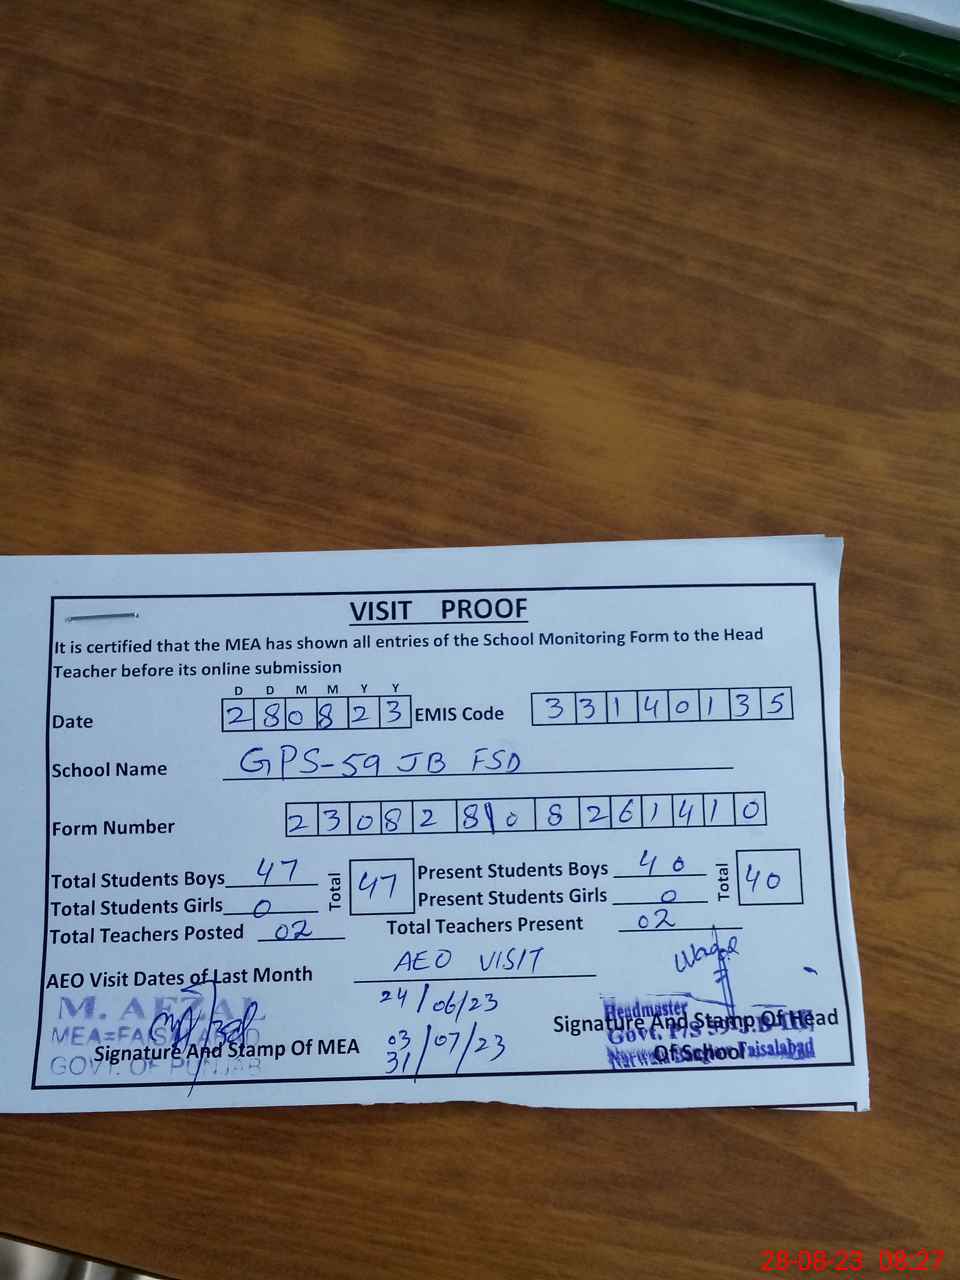 VISIT PROOF
It is certified that the MEA has shown all entries of the School Monitoring Form to the Head
Teacher before its online submission
D D M M Y Y
Date 280823 EMIS Code 33140135
School Name GPS-59 JB FSD
Form Number 23082808261410
Total Students Boys 47 Total 47 Present Students Boys 40 Total 40
Total Students Girls 0 Present Students Girls 0
Total Teachers Posted 02 Total Teachers Present 02
AEO Visit Dates of Last Month AEO VISIT
24/06/23
03/07/23
31
M. AFZAL
MEA=FAISALABAD
GOVT. OF PUNJAB
Signature And Stamp Of MEA
Headmaster
Govt. P/S
Faisalabad
Signature And Stamp Of Head
Of School
28-08-23 08:27